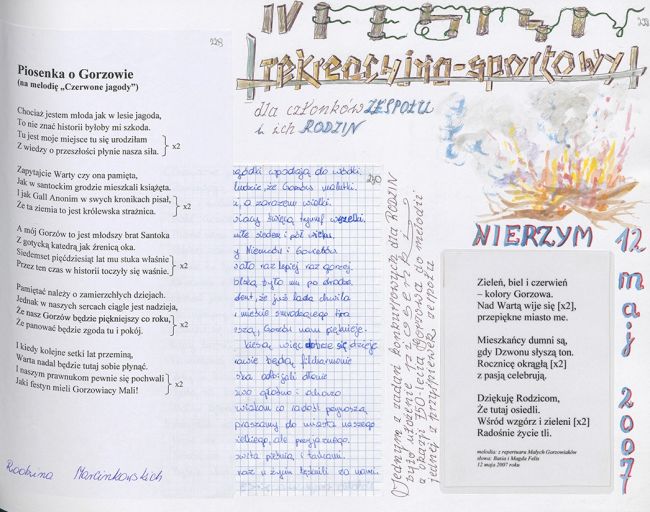 228
Piosenka o Gorzowie
(na melodię „Czerwone jagody”)
Chociaż jestem młoda jak w lesie jagoda,
To nie znać historii byłoby mi szkoda.
Tu jest moje miejsce tu się urodziłam
Z wiedzy o przeszłości płynie nasza siła. x2
Zapytajcie Warty czy ona pamięta,
Jak w santockim grodzie mieszkali książęta.
I jak Gall Anonim w swych kronikach pisał,
Że ta ziemia to jest królewska strażnica. x2
A mój Gorzów to jest młodszy brat Santoka
Z gotycką katedrą jak źrenicą oka.
Siedemset pięćdziesiąt lat mu stuka właśnie
Przez ten czas w historii toczyły się waśnie. x2
Pamiętać należy o zamierzchłych dziejach.
Jednak w naszych sercach ciągle jest nadzieja,
Że nasz Gorzów będzie piękniejszy co roku,
Że panować będzie zgoda tu i pokój. x2
I kiedy kolejne setki lat przeminą,
Warta nadal będzie tutaj sobie płynąć.
I naszym prawnukom pewnie się pochwali
Jaki festyn mieli Gorzowiacy Mali! x2
Rodzina Marcinkowskich
IV FESTYN
rekreacyjno-sportowy
dla członków ZESPOŁU
i ich RODZIN
230
wpadają do wódki.
ludzie, że Gorzów malutki.
a zarazem wielki.
siedem i pół
y Niemców i
raz lepiej raz gorzej.
była mu po drodze.
już taka chwila
Gorzów nam pięknieje.
więc dobrze się dzieje
będą filharmonie
głośno i
w radość
do miasta naszego
ale przyjaznego.
pieśnią i tańcami.
raz w życiu tęsknili za nami.
Jednym z zadań konkursowych dla RODZIN
było ułożenie PIOSENKI
z okazji 750-lecia Gorzowa do melodii
jednej z przyśpiewek zespołu
NIERZYM
12 maj 2007
Zieleń, biel i czerwień
– kolory Gorzowa.
Nad Wartą wije się [x2],
przepiękne miasto me.
Mieszkańcy dumni są,
gdy Dzwonu słyszą ton.
Rocznicę okrągłą [x2]
z pasją celebrują.
Dziękuję Rodzicom,
Że tutaj osiedli.
Wśród wzgórz i zieleni [x2]
Radośnie życie tli.
melodia: z repertuaru Małych Gorzowiaków
słowa: Basia i Magda Felis
12 maja 2007 roku